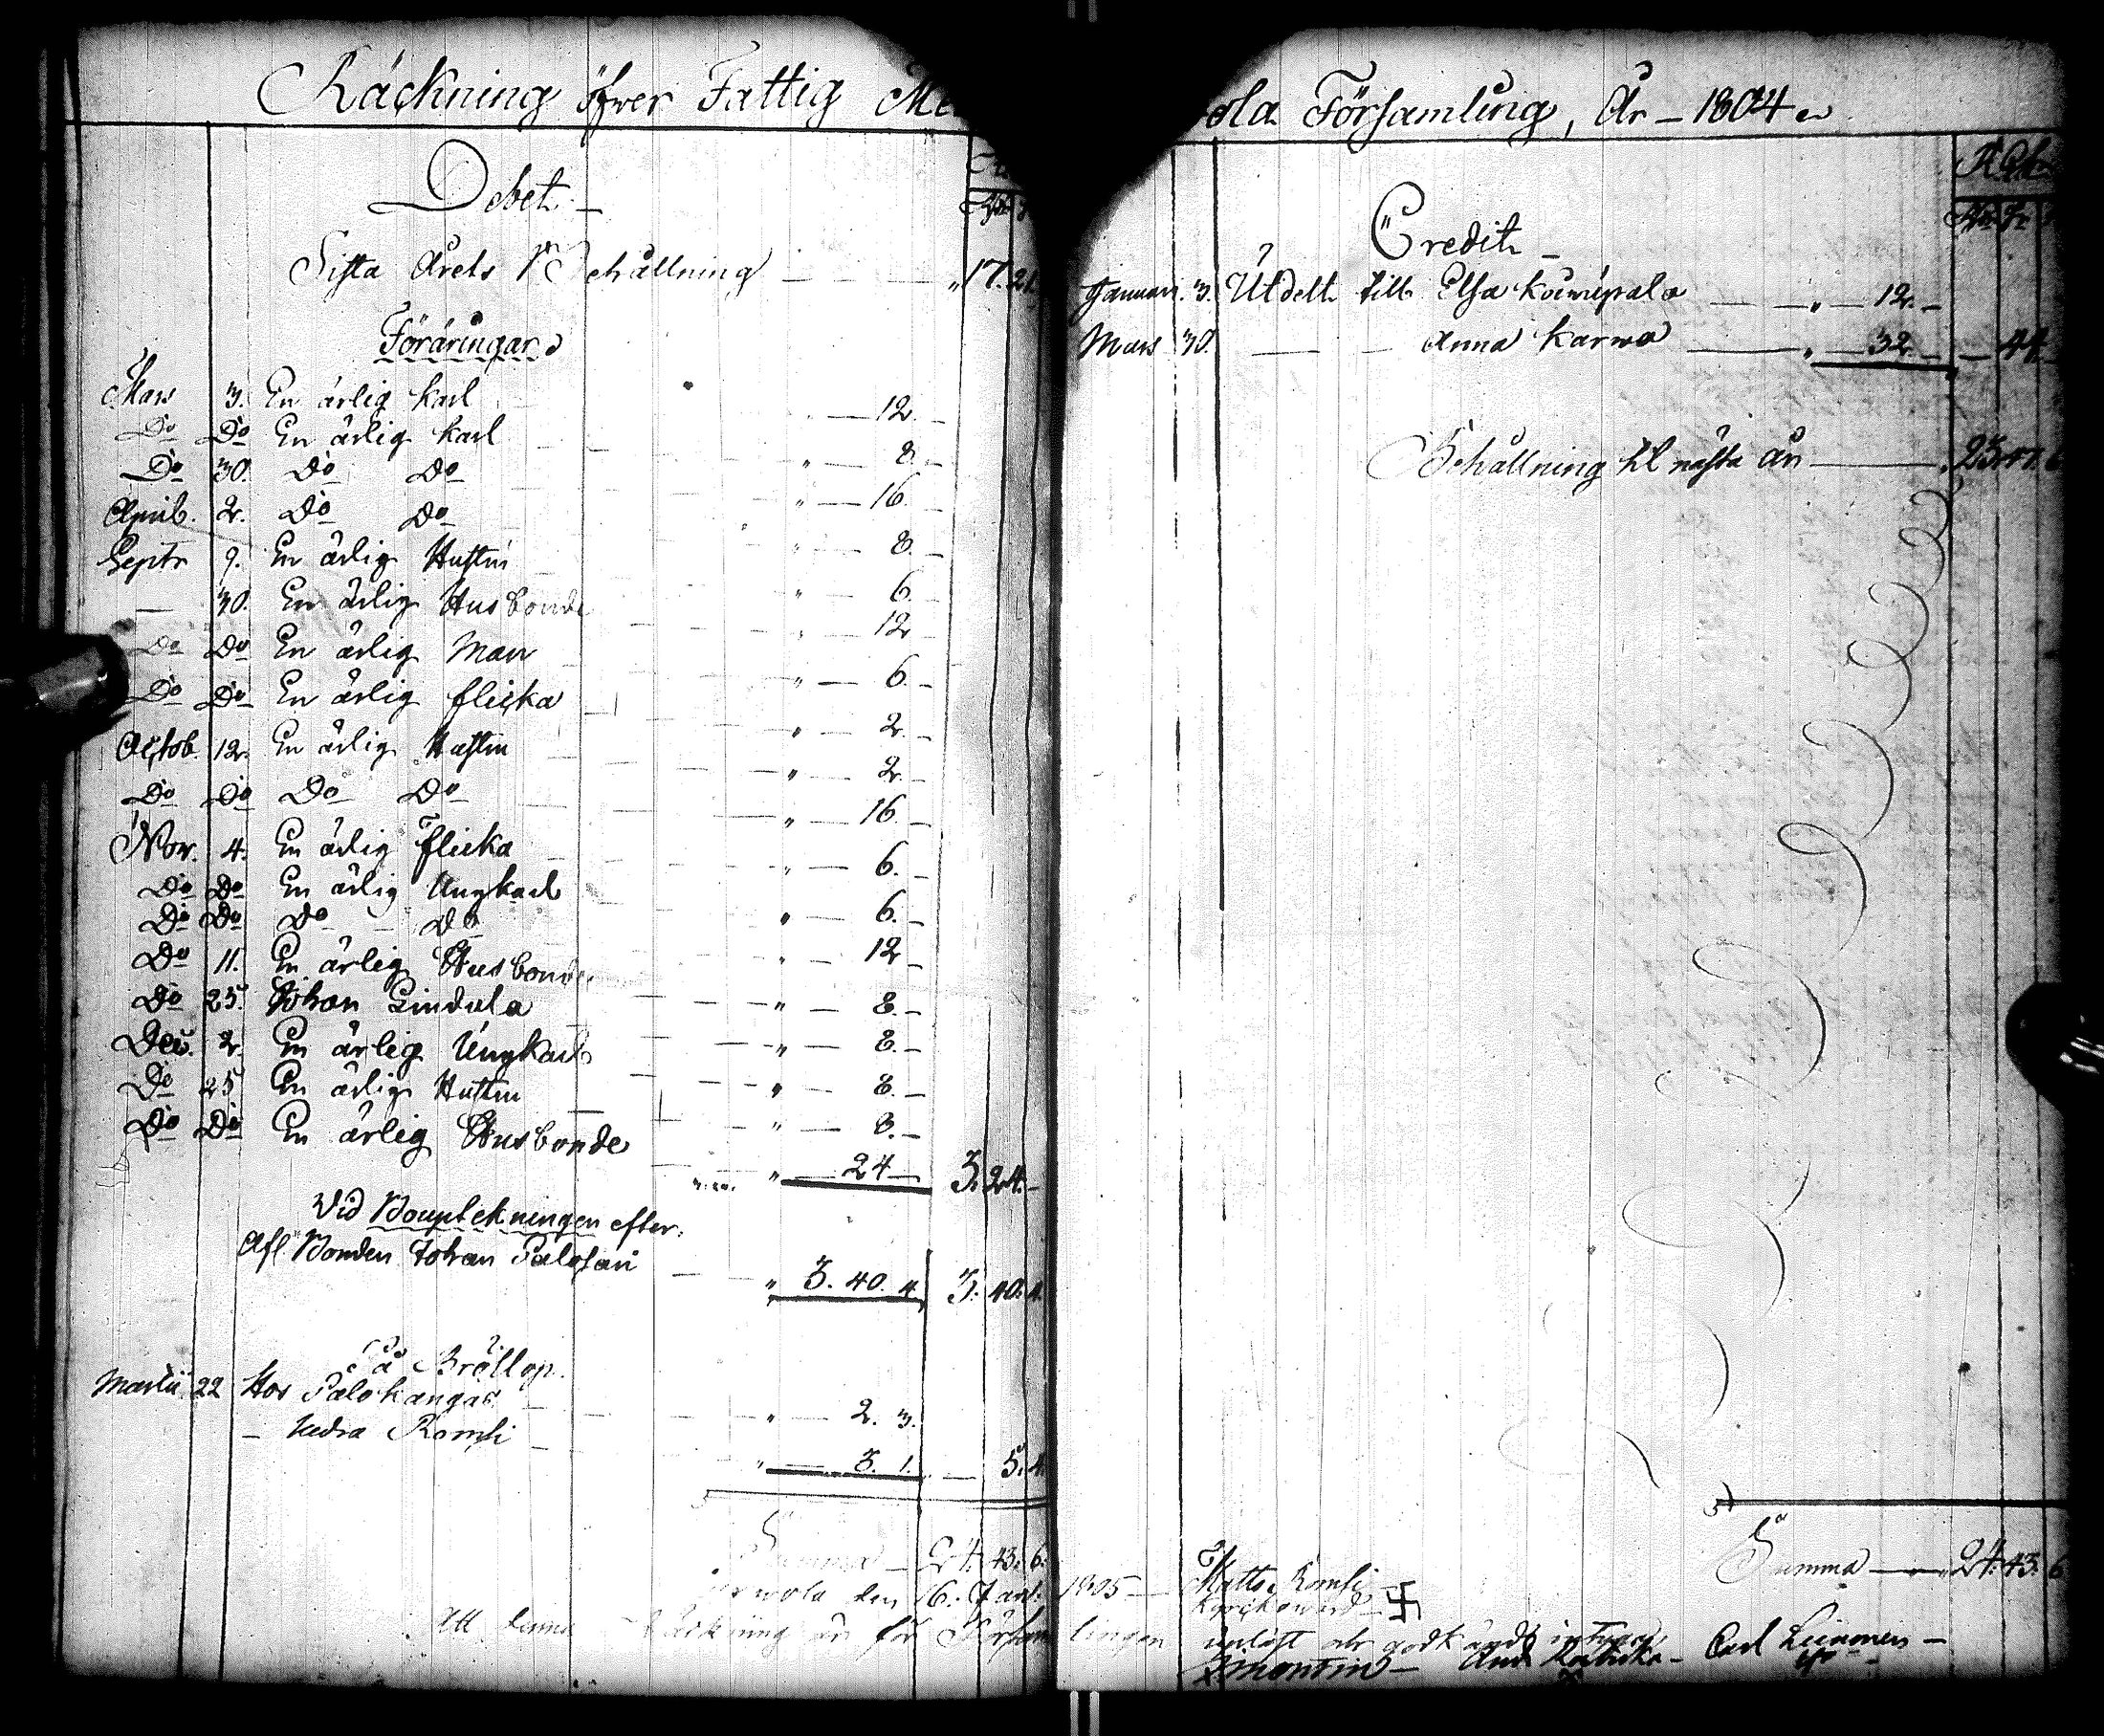 Räckning öfwer Fattig Me
Debet
Sista Årets Behållning — „ 17. 21.
Föräringar
Mars 3. En ärlig Karl — 12. —
Do Do En ärlig Karl „ — 8. —
Do 30. Do Do „ — 16. —
April. 2. Do Do „ — 8. —
Septr 9. En ärlig Hustru „ — 6. —
— 30. En ärlig Husbonde „ — 12 —
Do Do En ärlig Man „ — 6. —
Do Do En ärlig flicka „ — 2. —
Octob. 12. En ärlig Hustru „ — 2. —
Do Do Do Do „ — 16. —
Nov. 4. En ärlig flicka „ — 6. —
Do Do En ärlig Ungkarl „ — 6. —
Do Do Do Do „ — 12 —
Do 11. En ärlig Husbonde „ — 8. —
Do 25. Johan Lindula „ — 8. —
Dec. 2. En ärlig Ungkarl „ — 8. —
Do 25 En ärlig Hustru „ — 8. —
Do Do En ärlig Husbonde „ — 24 — 3. 24. —
Vid Bouptekningen efter
Afl. Bonden Johan Palosari „ 3. 40. 4. 3. 40. 4.
På Bröllop.
Martii 22 Hos Palokangas „ — 2. 3.
— Romsi „ — 3. 1. — 5. 4.
Summa — 24. 43. 6.
den 16. Jan:
Att denna Räckning är för Församl
ola Församling, År — 1804
Credit
Januari. 3. Utdelt till Elsa — „ — 12. —
Mars 30. — Anna Karwo — „ — 32 — — 44. —
Behållning til nästa år — 23. 47. 6
Summa — „ 24. 43. 6
1805 — Matts Romsi
Kyrckoward 卐
lingen upläst och godkändt intyga Carl Liimmen —